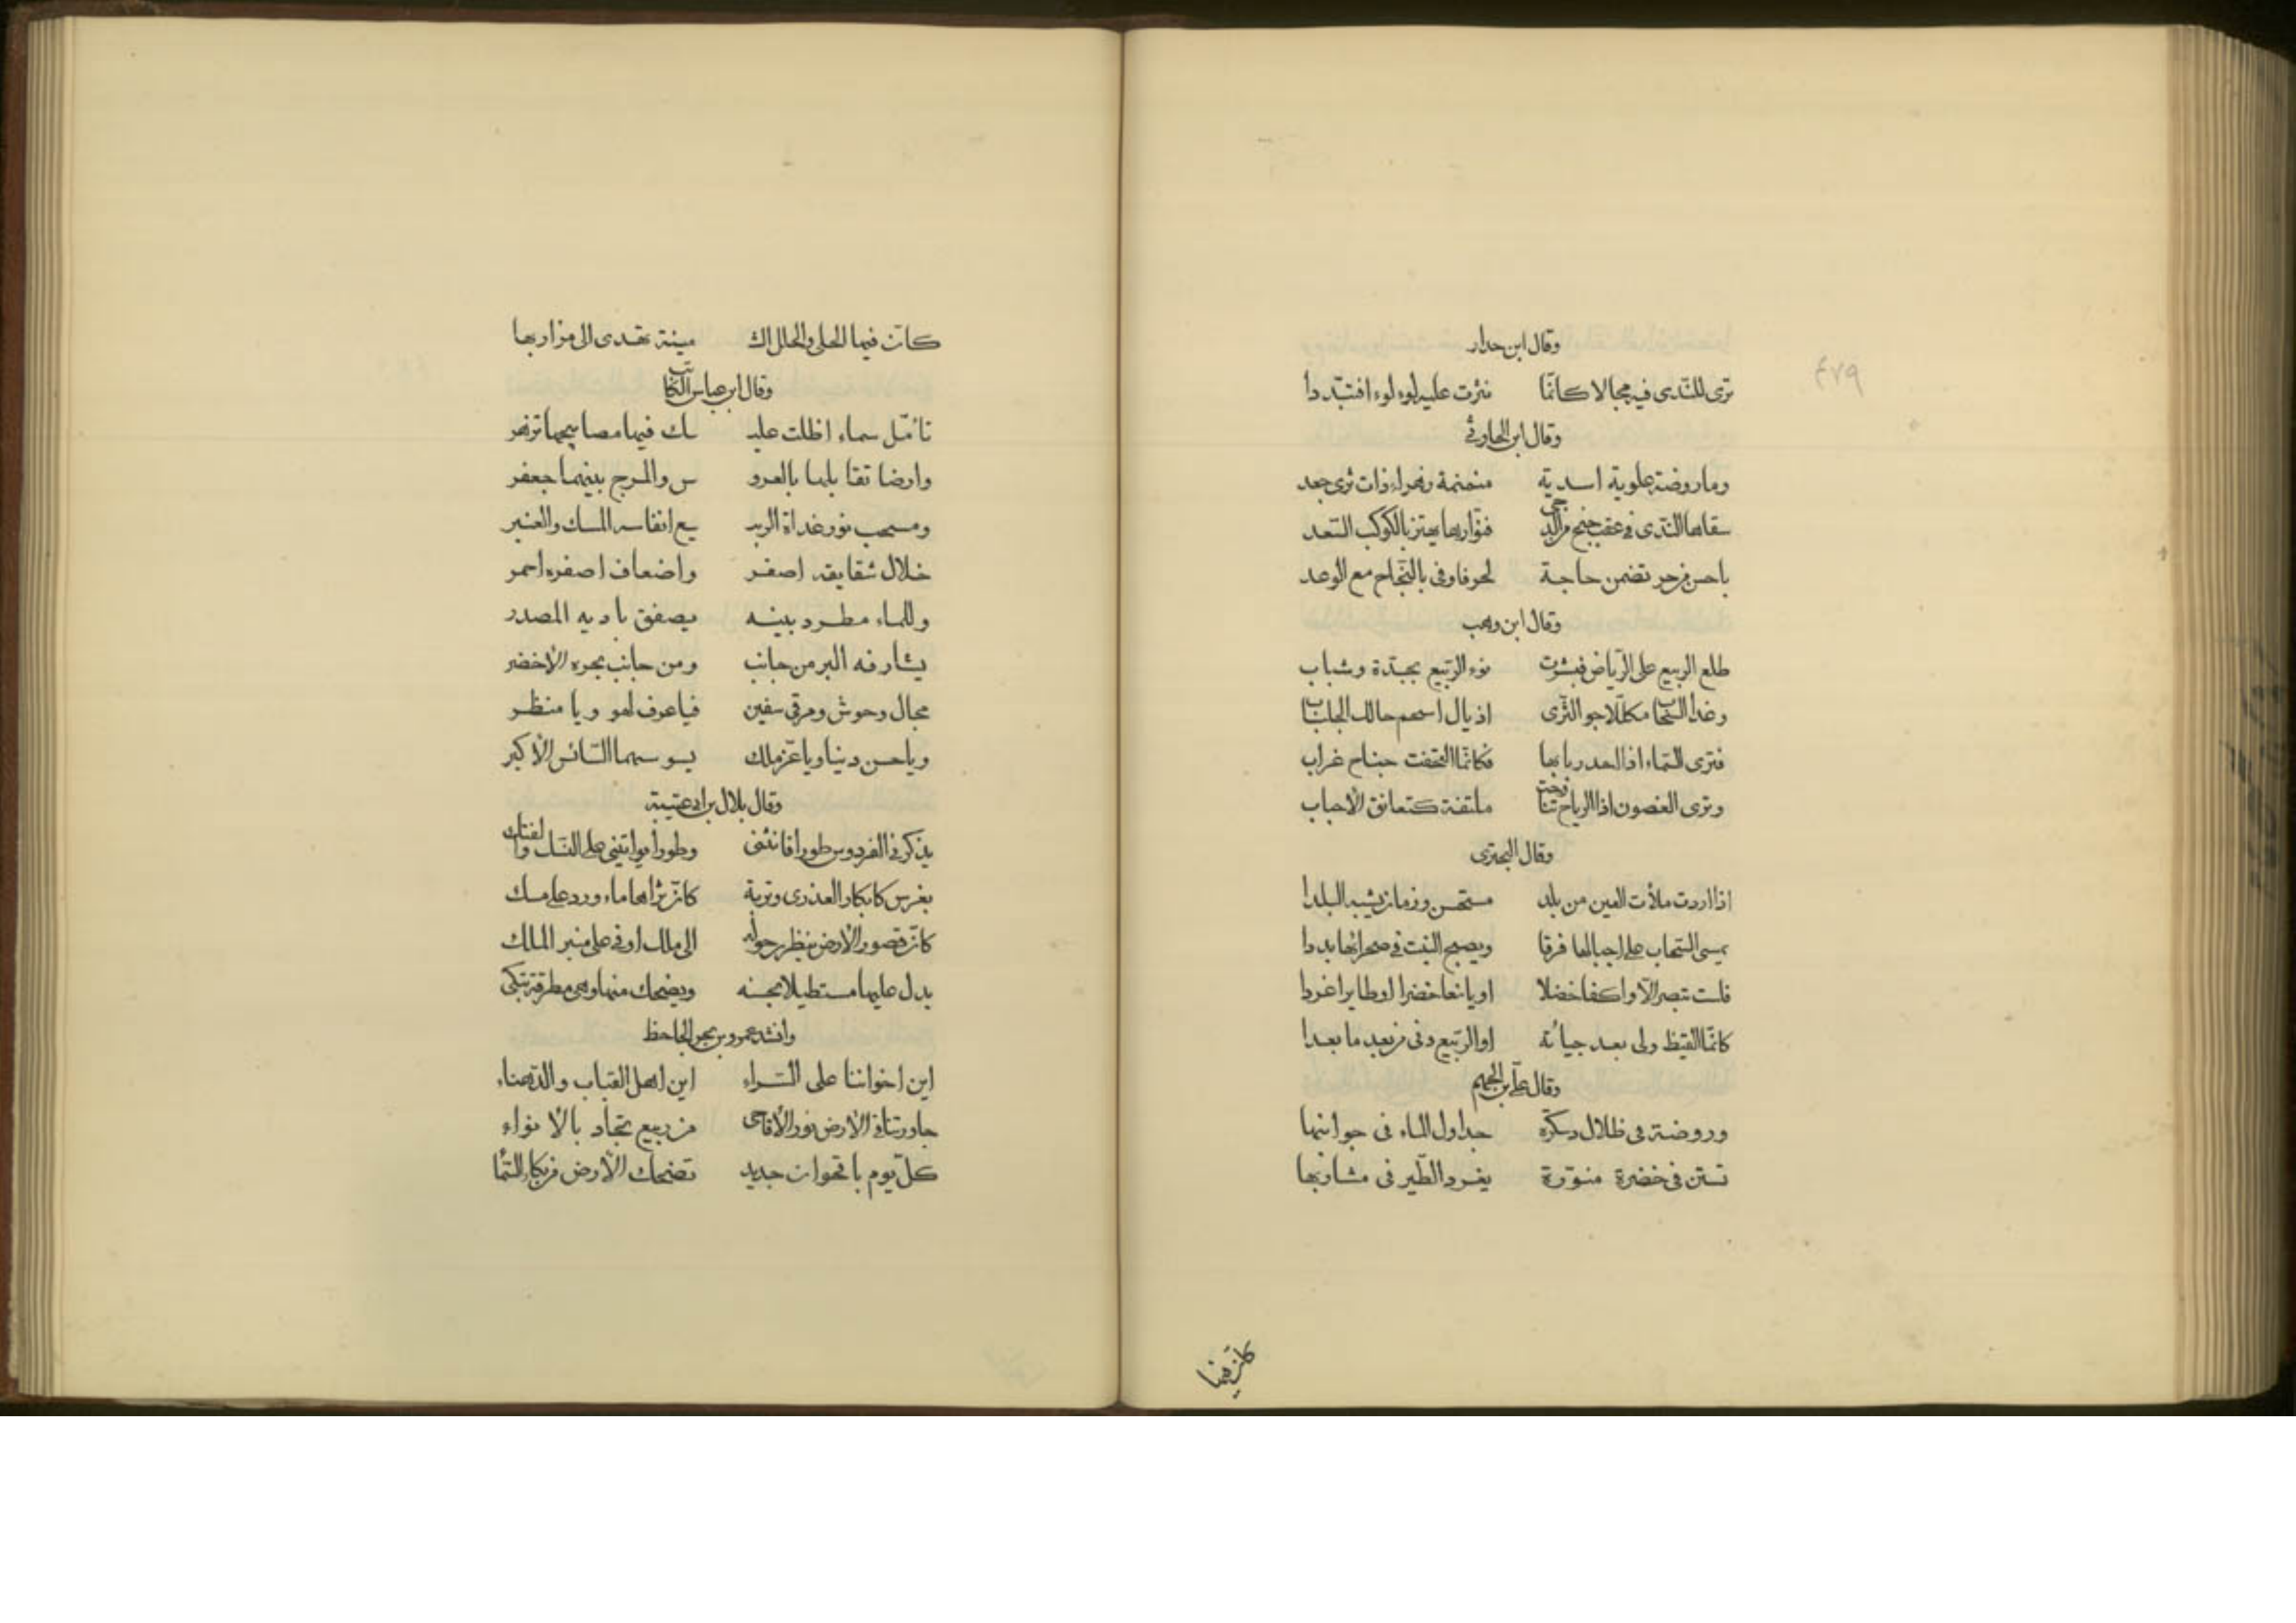 ٤٧٩
وقال ابن حدار
ترى للندى فيه مجالا كانّما نثرت عليه لوء لوء افتبّددا
وقال ابن الحارثي
وما روضة علوية اسدية منمنمة زهراء ذات ثرى جعد
سقاها الندى في عقب جنح من الدجى فنوّارها يهتز بالكوكب السّعد
باحسن من حر تضمن حاجة لحر فاوفى بالنّجاح مع الوعد
وقال ابن وهب
طلع الربيع على الرّياض فبشرت نوء الرّبيع بجدّة وشباب
وغدا السّحاب مكلّلا جو الثّرى اذيال اسحم حالك الجلباب
فترى السّماء اذا ربابها فكانّما التحفت جناح غراب
وترى الغصون اذا الرياح تناوحت ملتفة كتعانق الأحباب
وقال البحترى
اذا اردت ملأت العين من بلد مستحسن وزمان يشبه البلدا
يمسى السّحاب على اجبالها فرقا ويصبح النبت في صحرائها بددا
فلست تبصر الّا واكفا خضلا او يانعا خضرا او طايرا غردا
كانّما القيظ ولى بعد جيأته او الرّبيع دنى من بعد ما بعدا
وقال علّى بن الجهم
وروضة في ظلال دسكرّه جداول الماء في جوانبها
تستن في خضرة منوّرة يغرد الطّير في مشاربها
كانّ فيها
كانّ فيها الحلى والحلل ال‍ مينة تهدى الى مزاربها
وقال ابن عباس الكاتب
تامّل سماء اظلت عليـ ـك فيها مصابيحها تزهر
وارضا تقابلها بالعرو س والمرج بينهما جعفر
ومسحب نور غداة الربيـ ـع انفاسه المسك والعنبر
خلال شقايقه اصفر واضعاف اصفره احمر
وللماء مطرد بينه يصفق باديه المصدر
يشارفه البر من جانب ومن جانب بحره الأخضر
مجال وحوش ومرقى سفين فيا عرف لهو ويا منظر
ويا حسن دينا ويا عزّ ملك يسوسهما السّائس الأكبر
وقال بلال بن ابى عتيبة
يذكرني الفردوس طورا فانثنى وطورا يواتيني على القصف والفتك
بغرس كابكار العذرى وتربة كانّ ثراها ماء ورد على مسك
كانّ قصور الأرض ينظرن حوله الى ملك اوفى على منبر الملك
يدل عليها مستطيلا بحسنه ويضحك منها وهى مطرقة تبكى
وانشد عمرو بن بحر الجاحظ
اين اخواننا على السّراء اين اهل القباب والدّهناء
جاورتنا في الأرض نور الأقاحى من ربيع تجاد بالأنواء
كلّ يوم باقحوان جديد تضحك الأرض من بكاء السّما